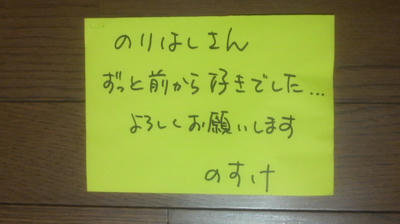 のりはしさん
ずっと前から好きでした...
よろしくお願いします
のすけ